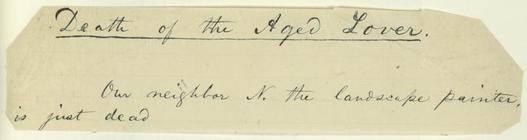 Death of the Aged Lover.
Our neighbor N. the landscape painter,
is just dead